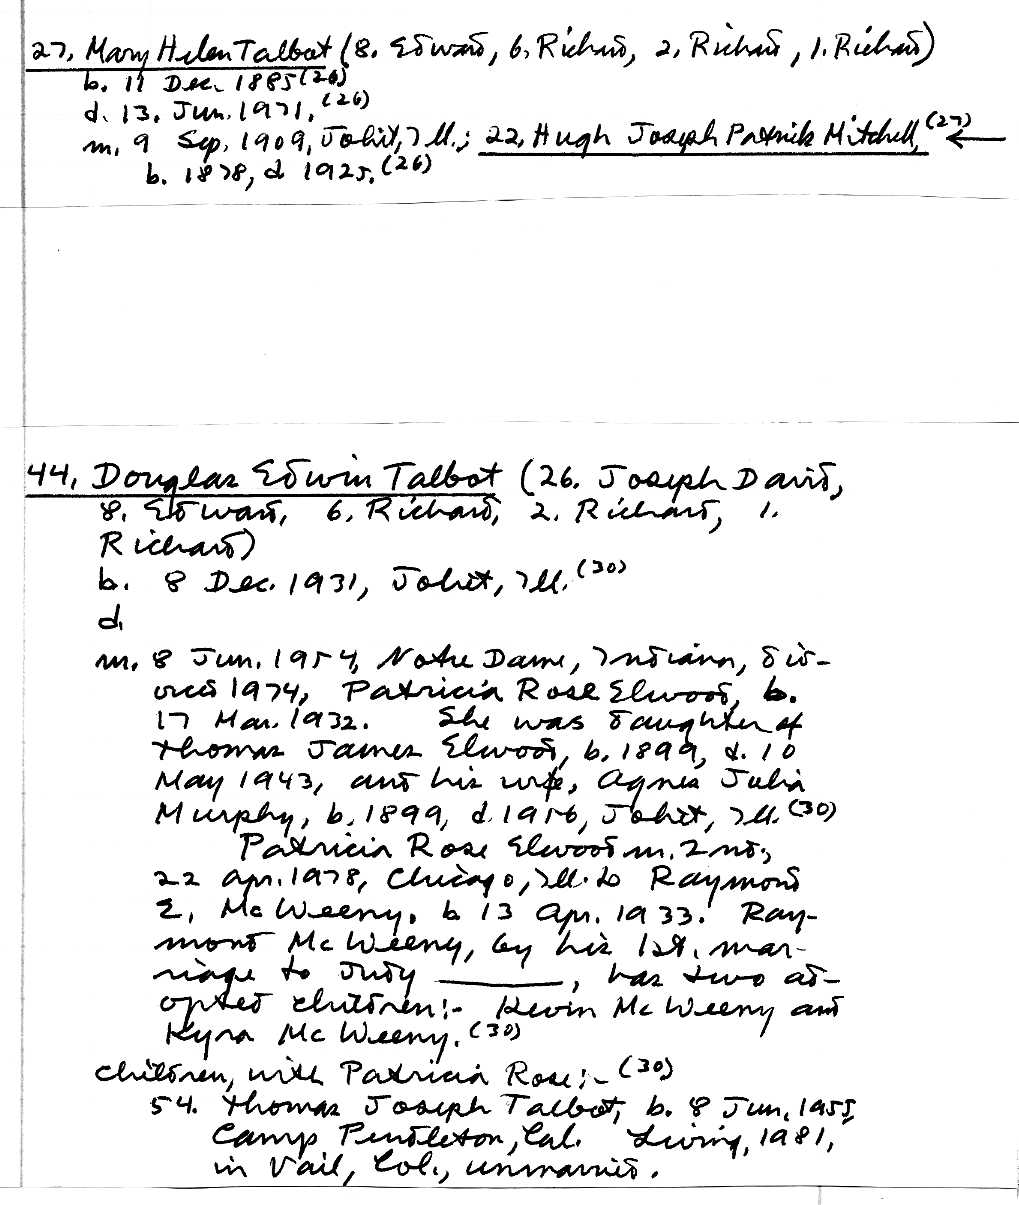 27. Mary Helen Talbot (8. Edward, 6. Richard, 2. Richard, 1. Richard)
b. 11 Dec. 1885 (26)
d. 13. Jun. 1971. (26)
m. 9 Sep. 1909, Joliet, Ill.; 22. Hugh Joseph Patrick Mitchell, (27) ←
b. 1878, d 1925. (26)
44. Douglas Edwin Talbot (26. Joseph David,
8. Edward, 6. Richard, 2. Richard, 1.
Richard)
b. 8 Dec. 1931, Joliet, Ill. (30)
d.
m. 8 Jun. 1954, Notre Dame, Indiana, div-
orced 1974, Patricia Rose Elwood, b.
17 Mar. 1932. She was daughter of
Thomas James Elwood, b. 1899, d. 10
May 1943, and his wife, Agnes Julia
Murphy, b. 1899, d. 1956, Joliet, Ill. (30)
Patricia Rose Elwood m. 2nd.,
22 Apr. 1978, Chicago, Ill. to Raymond
E. McWeeny. b 13 Apr. 1933. Ray-
mond McWeeny, by his 1st. mar-
riage to Judy ______, has two ad-
opted children:- Kevin McWeeny and
Kyra McWeeny. (30)
Children, with Patricia Rose:- (30)
54. Thomas Joseph Talbot, b. 8 Jun. 1955,
Camp Pendleton, Cal. Living, 1981,
in Vail, Col., unmarried.